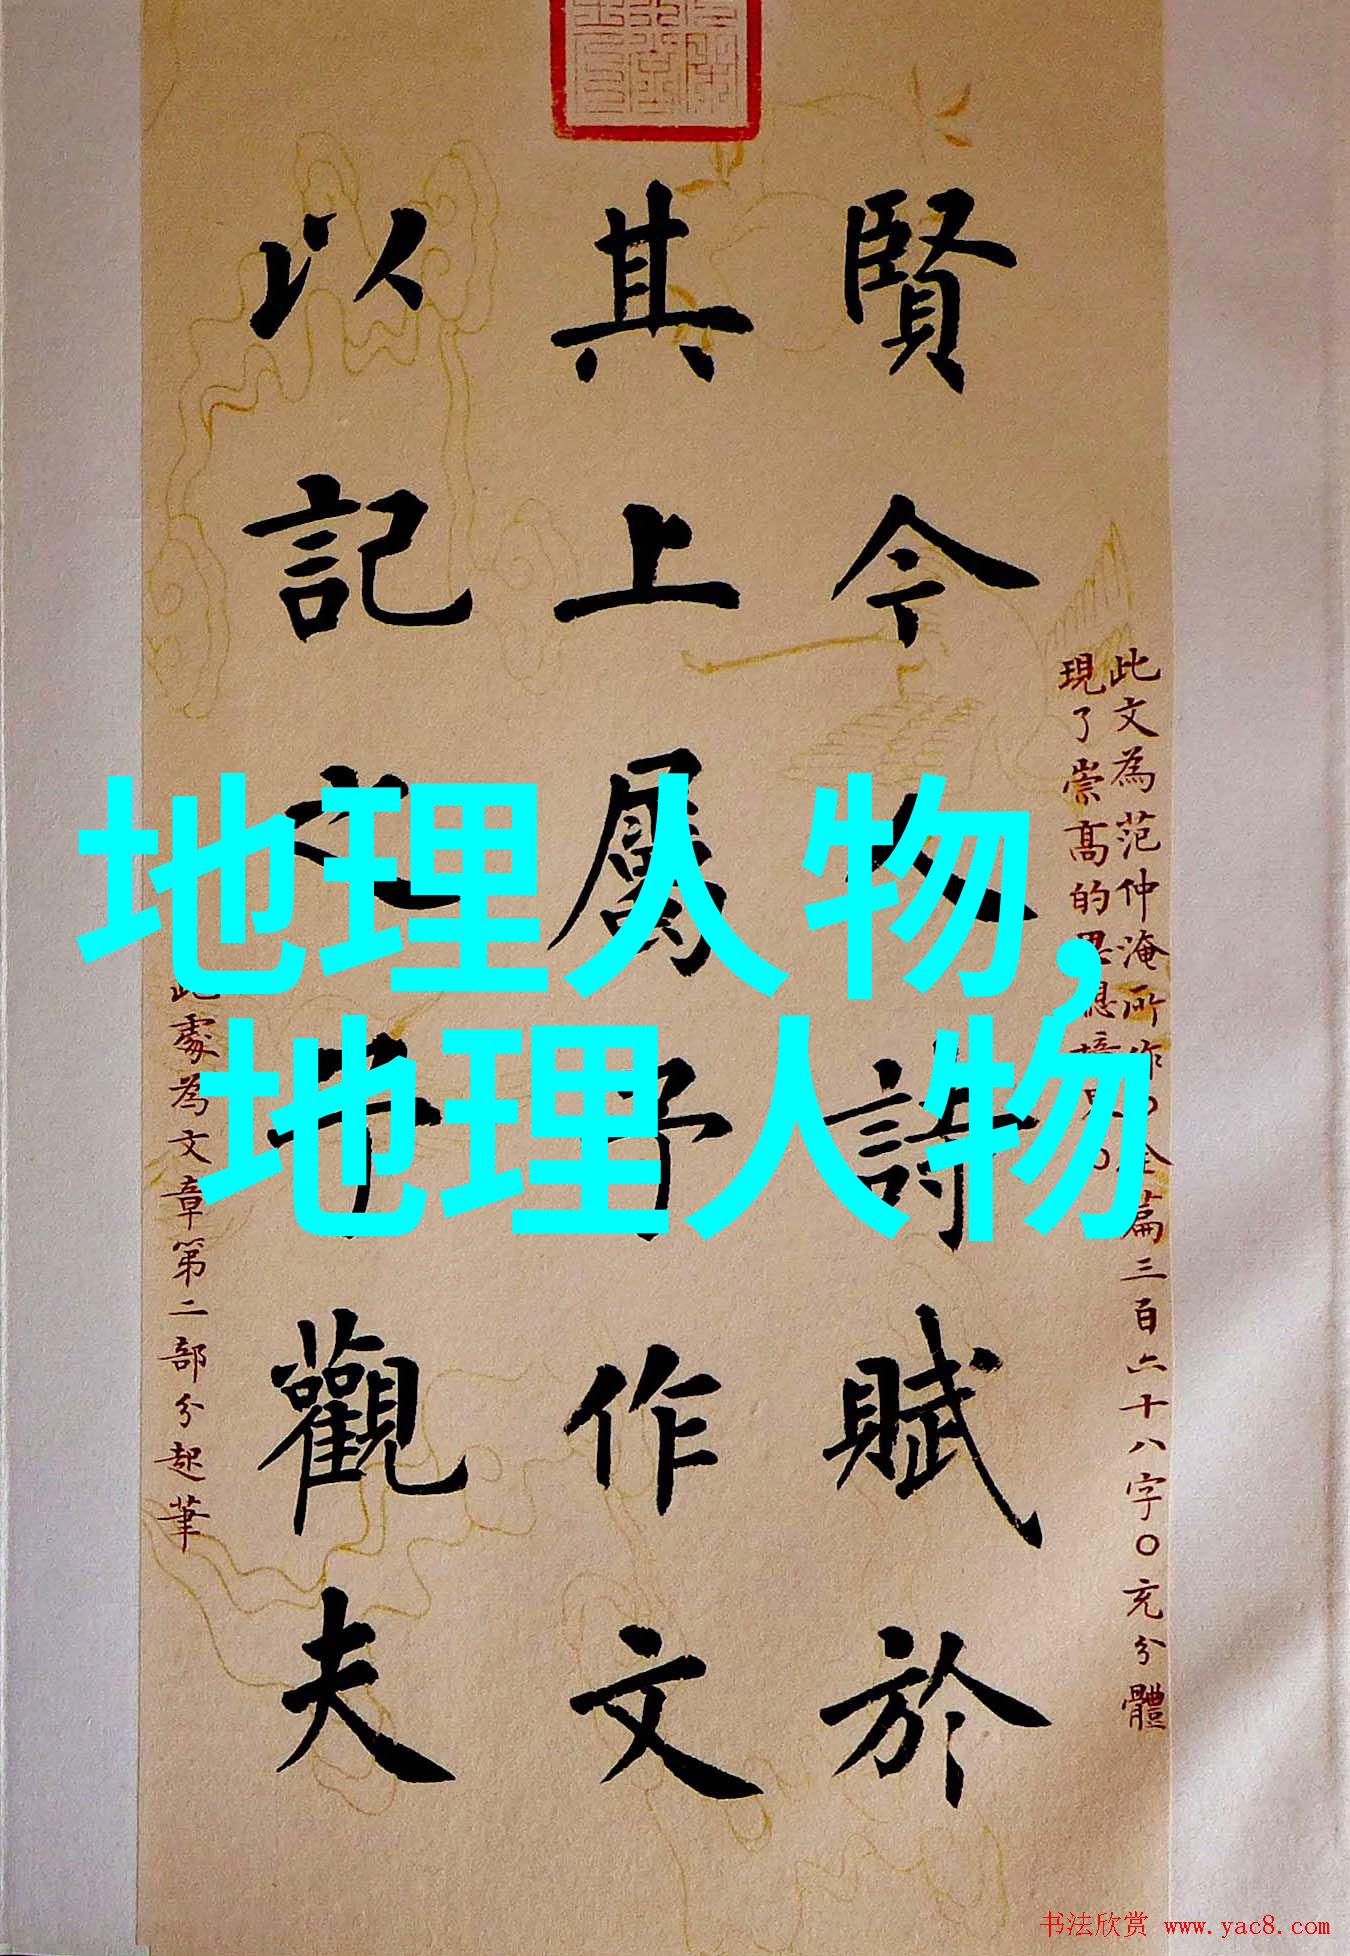 地理人物，
地理人物
此文為范仲淹所作〇全篇三百六十八字〇充分體
現了崇高的思想境界〇
賢今人詩賦於
其上屬予作文
以記之予觀夫
此處為文章第二部分起筆
书法欣赏 www.yac8.com